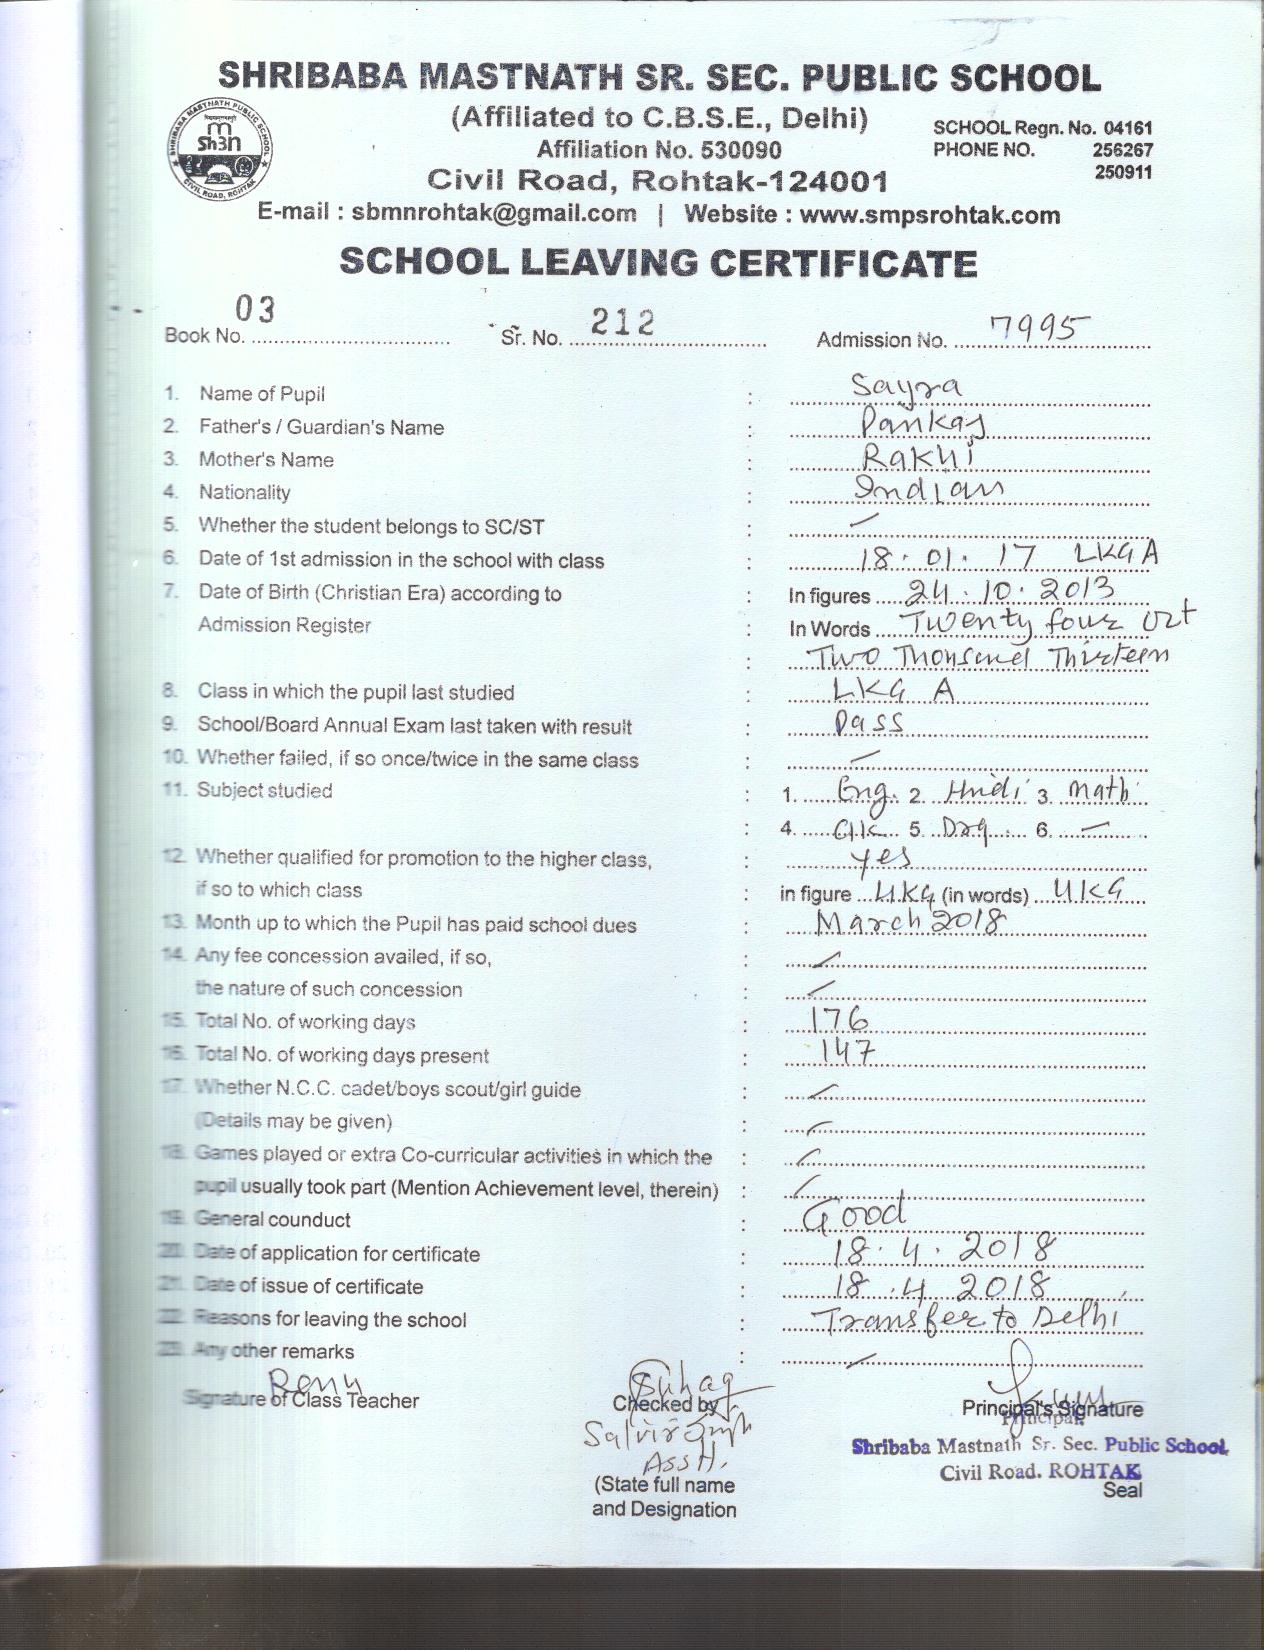 SHRIBABA MASTNATH SR. SEC. PUBLIC SCHOOL
(Affiliated to C.B.S.E., Delhi)
SCHOOL Regn. No. 04161
Affiliation No. 530090
PHONE NO. 256267
250911
Civil Road, Rohtak-124001
E-mail : sbmnrohtak@gmail.com | Website : www.smpsrohtak.com
SHRIBABA MASTNATH PUBLIC SCHOOL
CIVIL ROAD, ROHTAK
SCHOOL LEAVING CERTIFICATE
Book No. 03 Sr. No. 212 Admission No. 7995
1. Name of Pupil : Sayra
2. Father's / Guardian's Name : Pankaj
3. Mother's Name : Rakhi
4. Nationality : Indian
5. Whether the student belongs to SC/ST : –
6. Date of 1st admission in the school with class : 18.01.17 LKG A
7. Date of Birth (Christian Era) according to : In figures 24.10.2013
Admission Register : In Words Twenty four Oct
: Two Thousand Thirteen
8. Class in which the pupil last studied : LKG A
9. School/Board Annual Exam last taken with result : Pass
10. Whether failed, if so once/twice in the same class : –
11. Subject studied : 1. Eng. 2. Hindi 3. Math
: 4. G.K. 5. Drg. 6. –
12. Whether qualified for promotion to the higher class, : yes
if so to which class : in figure UKG (in words) UKG
13. Month up to which the Pupil has paid school dues : March 2018
14. Any fee concession availed, if so, : –
the nature of such concession : –
15. Total No. of working days : 176
16. Total No. of working days present : 147
17. Whether N.C.C. cadet/boys scout/girl guide : –
(Details may be given) : –
18. Games played or extra Co-curricular activities in which the : –
pupil usually took part (Mention Achievement level, therein) : –
19. General counduct : Good
20. Date of application for certificate : 18.4.2018
21. Date of issue of certificate : 18.4.2018
22. Reasons for leaving the school : Transfer to Delhi
23. Any other remarks : –
Renu
Signature of Class Teacher Checked by Principal's Signature
Principal
Shribaba Mastnath Sr. Sec. Public School
Civil Road. ROHTAK
Seal
(State full name
and Designation